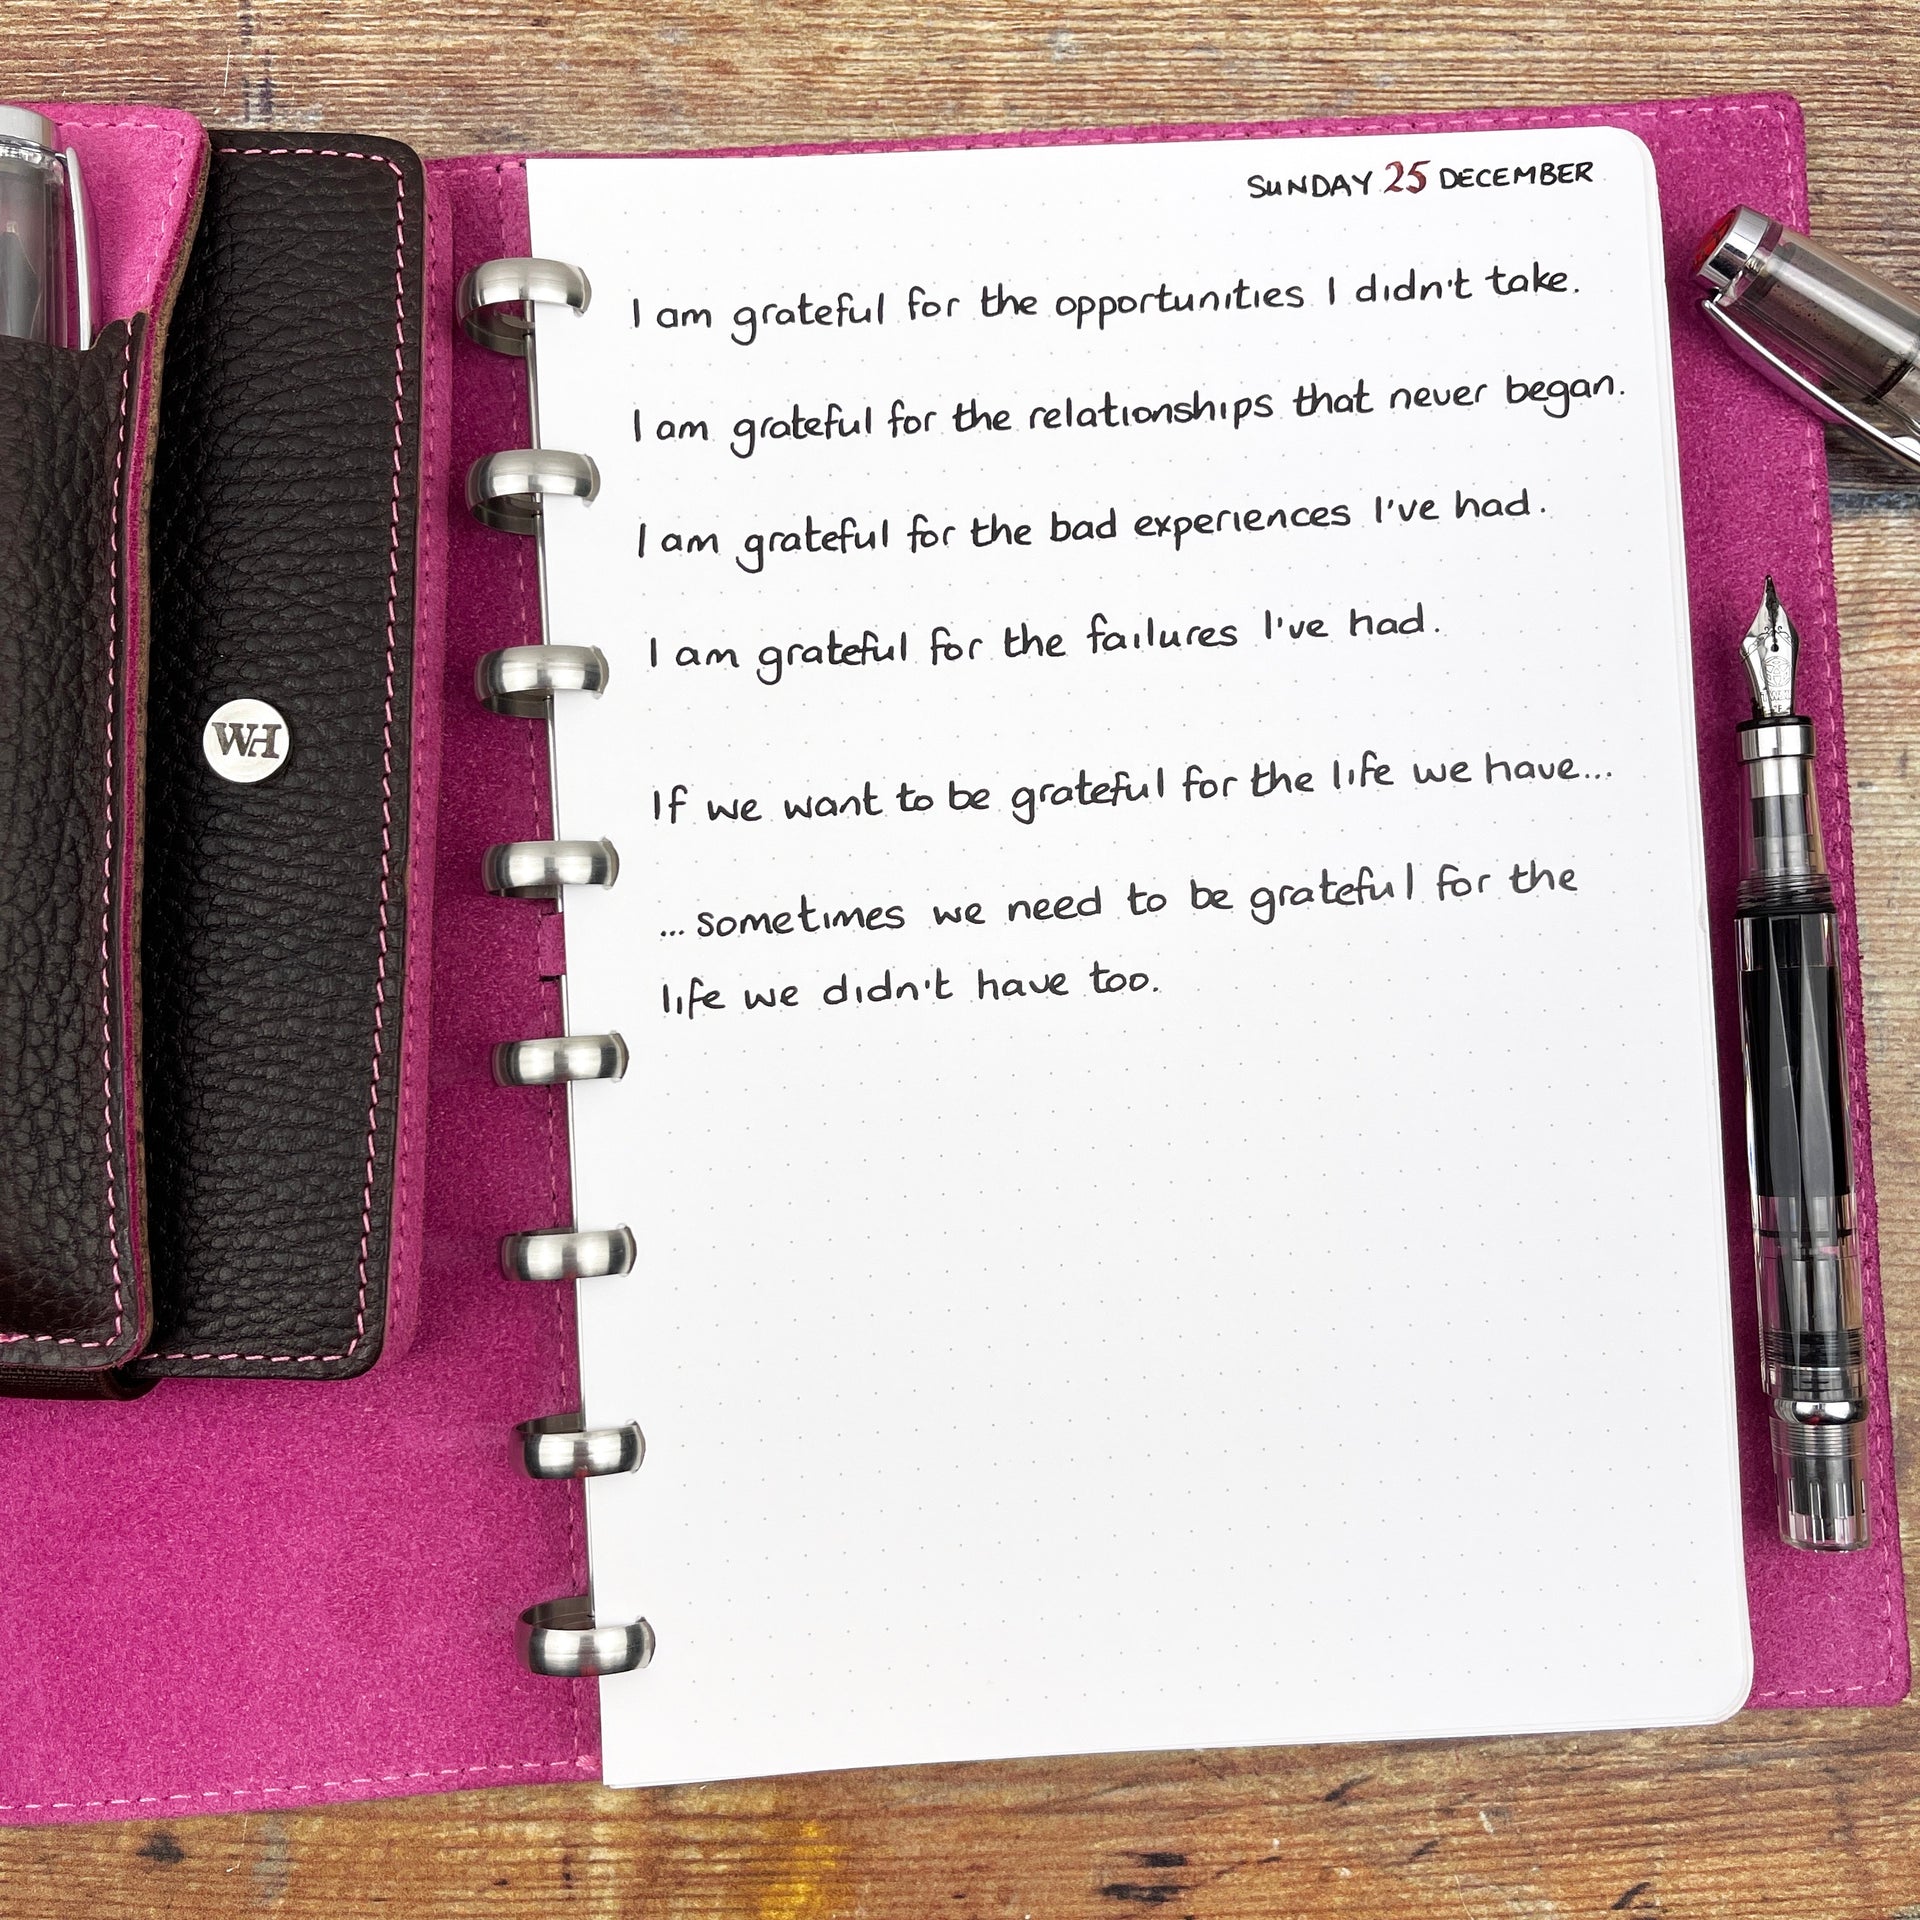 SUNDAY 25 DECEMBER
I am grateful for the opportunities I didn't take.
I am grateful for the relationships that never began.
I am grateful for the bad experiences I've had.
I am grateful for the failures I've had.
If we want to be grateful for the life we have...
...sometimes we need to be grateful for the
life we didn't have too.
WH